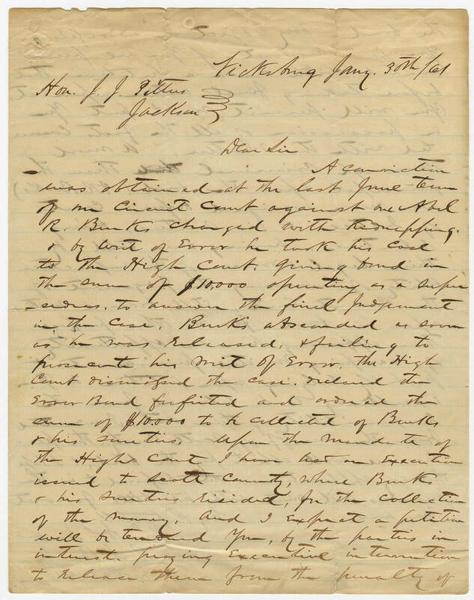 Vicksburg Jany. 30th/61
Hon. J. J. Pettus
Jackson
Dear Sir
A conviction
was obtained at the last June term
of our Circuit Court against one Abel
R. Burks charged with Kidnapping.
& by Writ of Error he took his case
to the High Court, giving bond in
the sum of $10,000 operating as a super
-sedeas, to answer the final Judgement
in the case. Burks absconded as soon
as he was released, & failing to
prosecute his writ of Error, the High
Court dismissed the case, declared the
Error Bond forfeited and ordered the
sum of $10000 to be collected of Burks
& his sureties. Upon the mandate of
the High Court I have had an Execution
issued to Scott County, where Burks
& his sureties resided, for the collection
of the money, and I expect a petition
will be tendered You, by the parties in
interest, praying Executive intervention
to release them from the penalty of